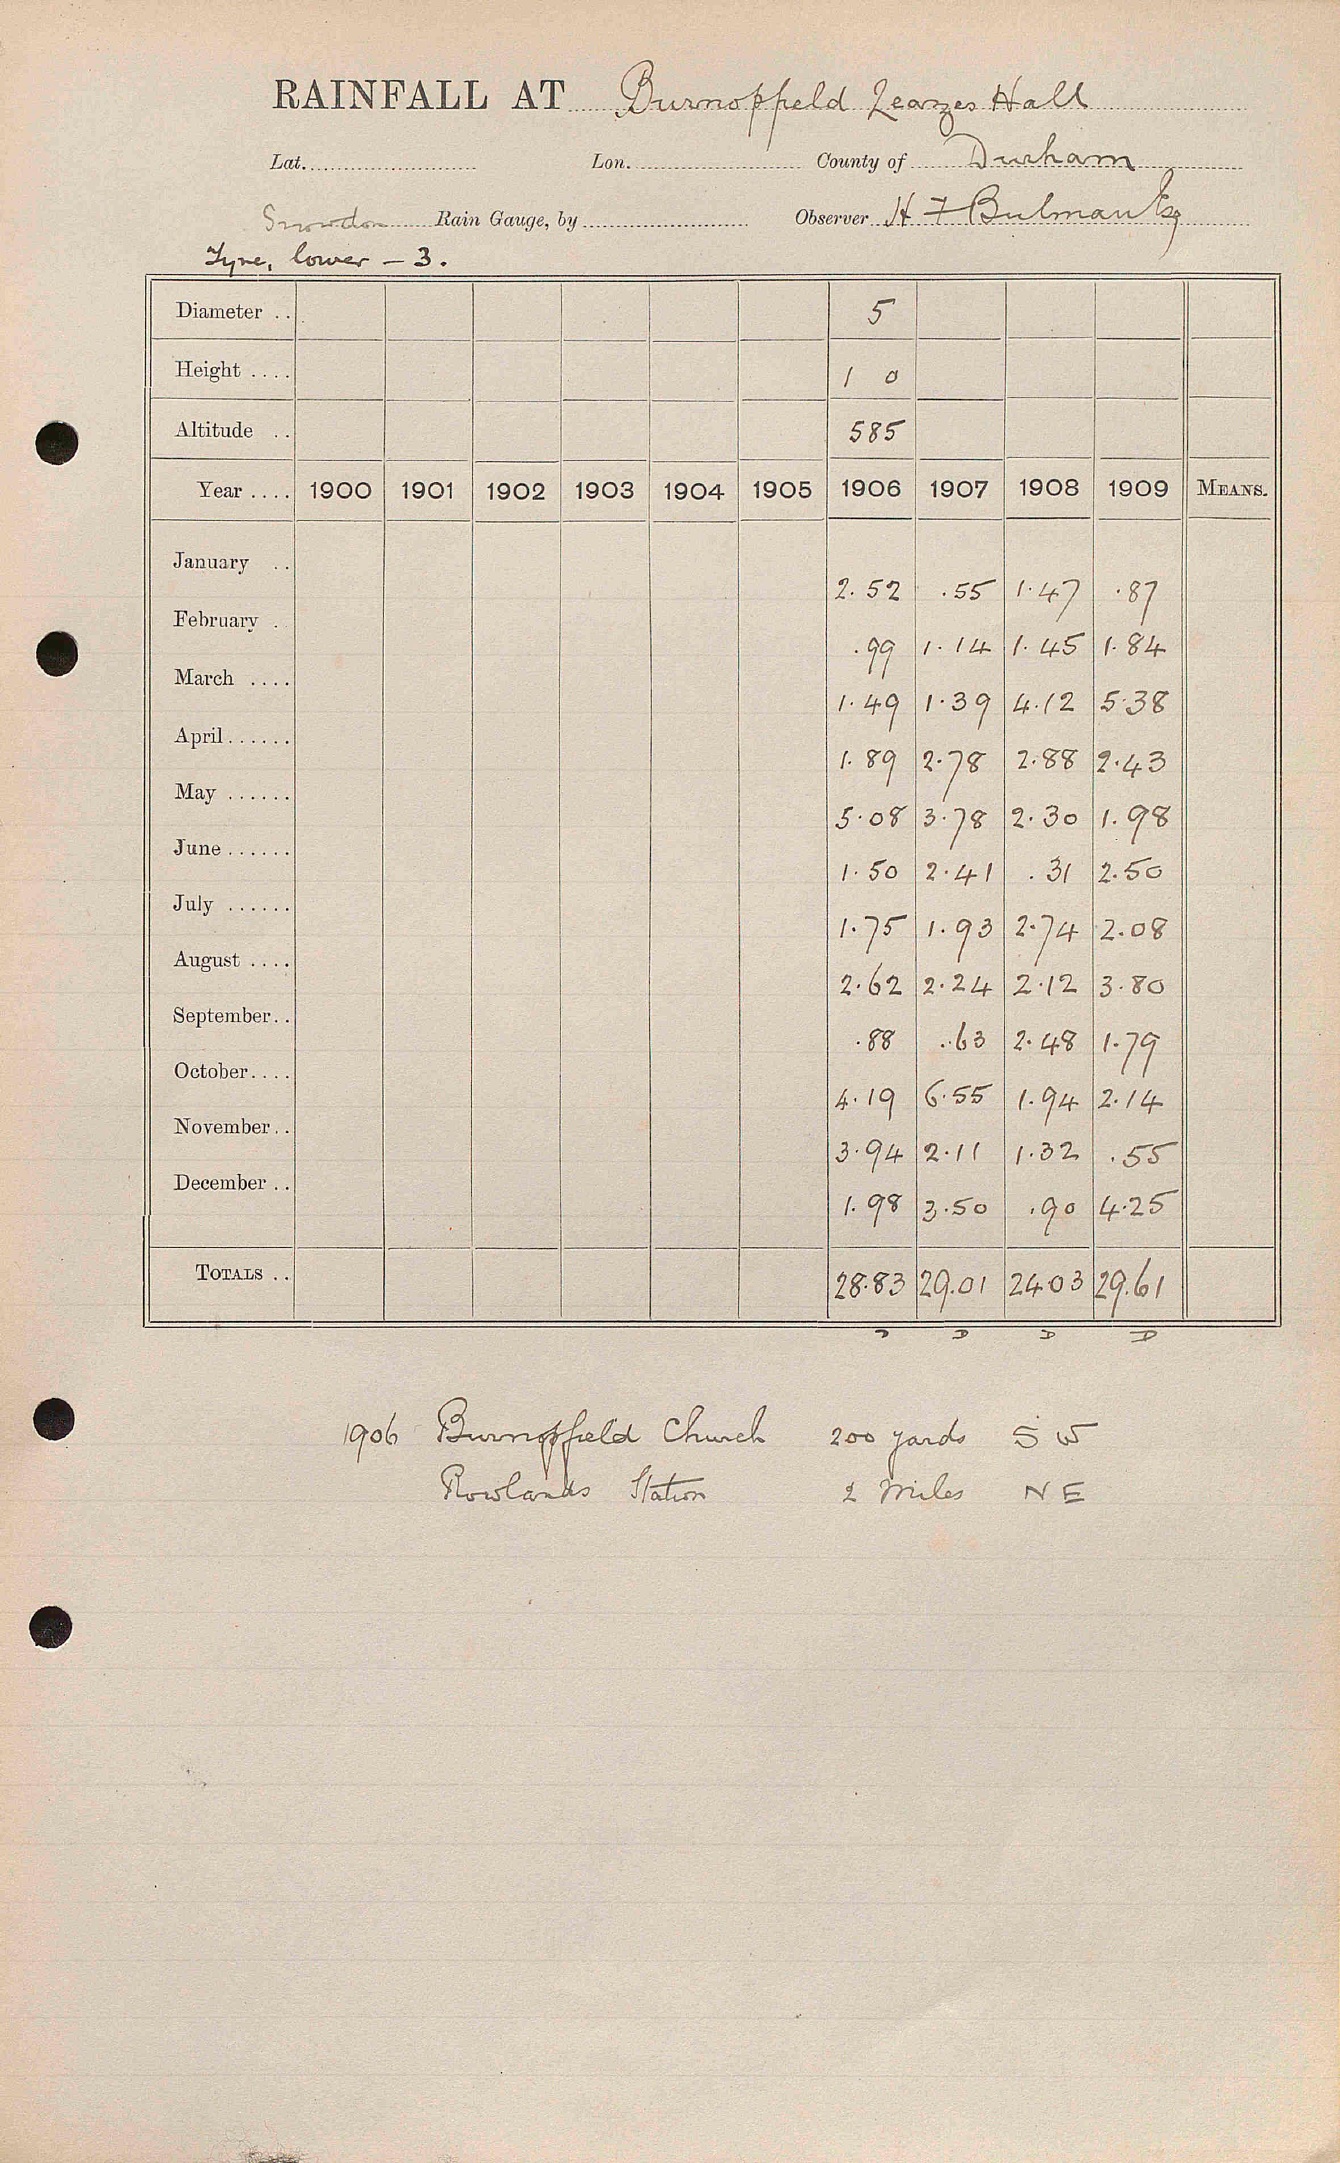 RAINFALL AT Burnopfield Leazes Hall
Lat. Lon. County of Durham
Snowdon Rain Gauge, by Observer H F Bulman Esq
Tyne, lower - 3.
Diameter .. 5
Height .... 1 0
Altitude .. 585
Year .... 1900 1901 1902 1903 1904 1905 1906 1907 1908 1909 MEANS.
January .. 2.52 .55 1.47 .87
February . .99 1.14 1.45 1.84
March .... 1.49 1.39 4.12 5.38
April...... 1.89 2.78 2.88 2.43
May ...... 5.08 3.78 2.30 1.98
June...... 1.50 2.41 .31 2.50
July ...... 1.75 1.93 2.74 2.08
August .... 2.62 2.24 2.12 3.80
September.. .88 .63 2.48 1.79
October.... 4.19 6.55 1.94 2.14
November.. 3.94 2.11 1.32 .55
December .. 1.98 3.50 .90 4.25
TOTALS .. 28.83 29.01 24.03 29.61
D D D D
1906 Burnopfield Church 200 yards S W
Rowlands Station 2 Miles N E